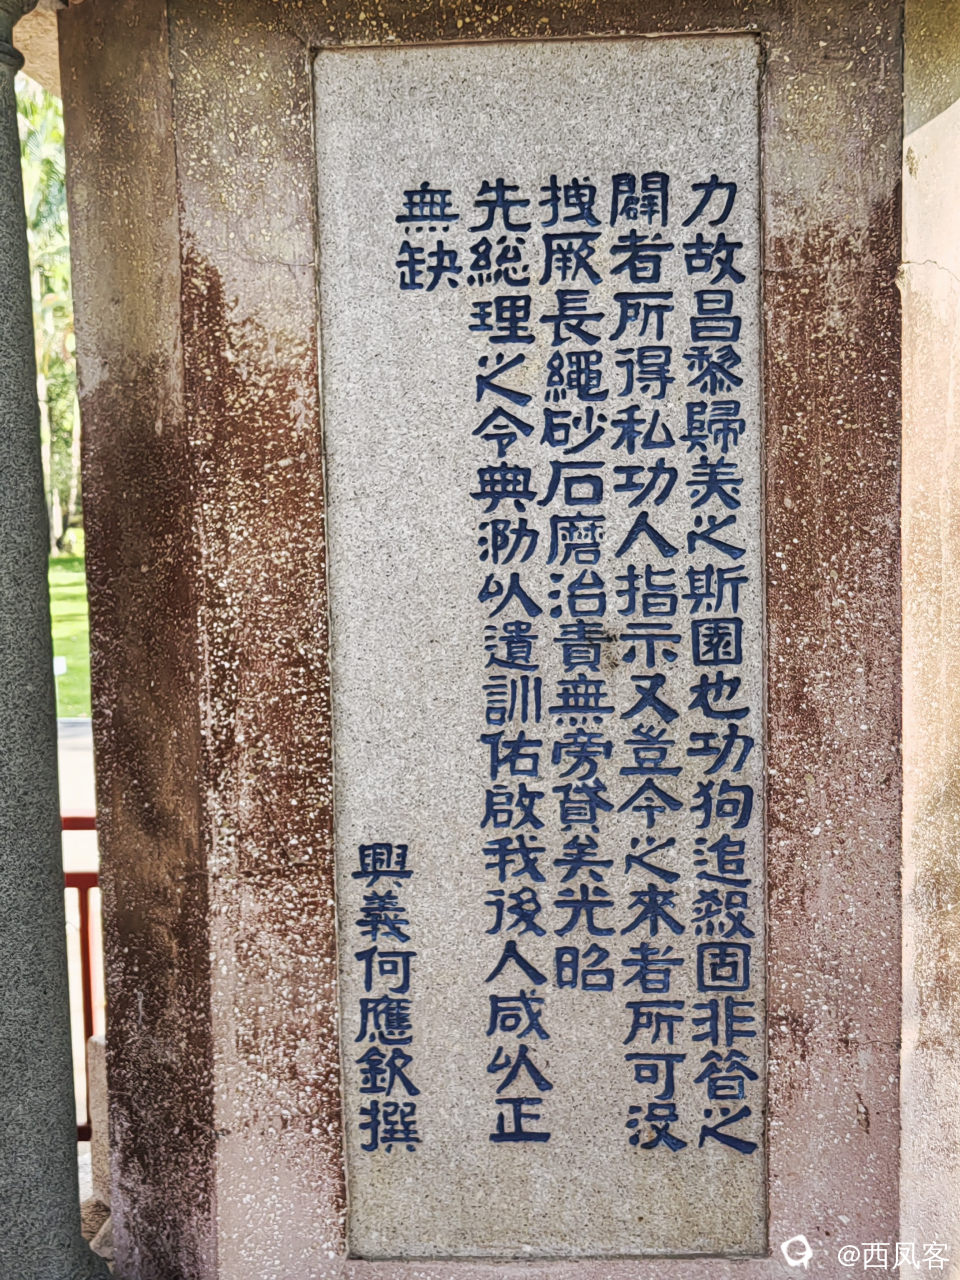 力故昌黎歸美之斯園也功狗追殺固非昔之
闢者所得私功人指示又豈今之來者所可没
拽厥長繩砂石磨治責無旁貸矣光昭
先総理之令典泐以遺訓佑啟我後人咸以正
無缺
興義何應欽撰
@西凤客